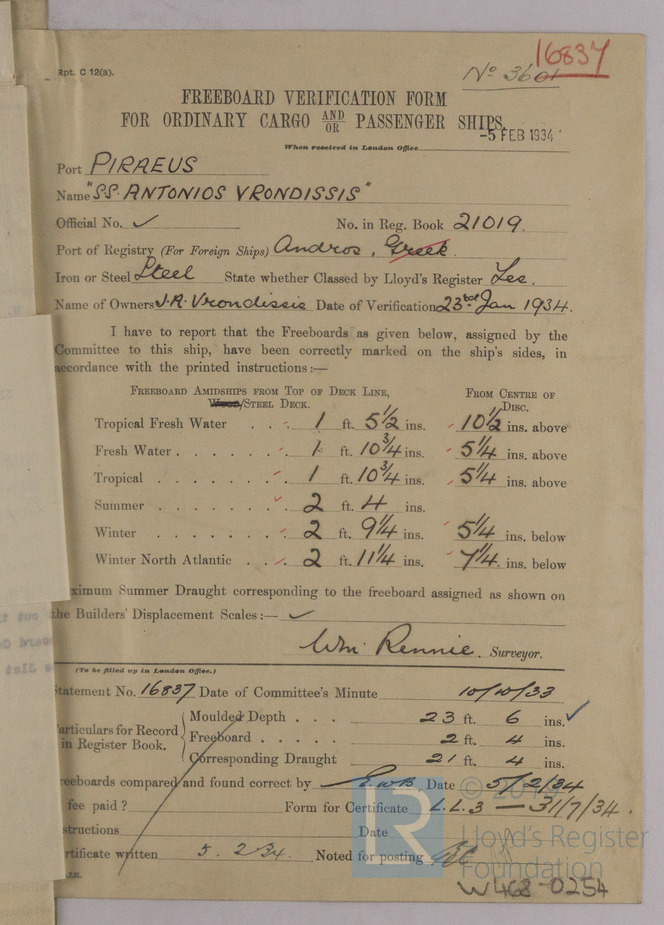 16837
Rpt. C 12(a).
No 3601
FREEBOARD VERIFICATION FORM
FOR ORDINARY CARGO AND/OR PASSENGER SHIPS.
-5 FEB 1934
When received in London Office
Port PIRAEUS
Name "S.S. ANTONIOS VRONDISSIS"
Official No. ✓ No. in Reg. Book 21019.
Port of Registry (For Foreign Ships) Andros, Greek.
Iron or Steel Steel State whether Classed by Lloyd's Register Yes.
Name of Owners J.A. Vrondissis Date of Verification 23rd Jan 1934.
I have to report that the Freeboards as given below, assigned by the
Committee to this ship, have been correctly marked on the ship's sides, in
accordance with the printed instructions:—
FREEBOARD AMIDSHIPS FROM TOP OF DECK LINE, FROM CENTRE OF
Wood/STEEL DECK. DISC.
Tropical Fresh Water . . . 1 ft. 5 1/2 ins. 10 1/2 ins. above
Fresh Water . . . . . . . 1 ft. 10 3/4 ins. 5 1/4 ins. above
Tropical . . . . . . . 1 ft. 10 3/4 ins. 5 1/4 ins. above
Summer . . . . . . . 2 ft. 4 ins.
Winter . . . . . . . 2 ft. 9 1/4 ins. 5 1/4 ins. below
Winter North Atlantic . . . 2 ft. 11 1/4 ins. 7 1/4 ins. below
ximum Summer Draught corresponding to the freeboard assigned as shown on
the Builders' Displacement Scales:— ✓
Wm. Rennie. Surveyor.
(To be filled up in London Office.)
Statement No. 16837 Date of Committee's Minute 10/10/33
articulars for Record in Register Book.
Moulded Depth . . . 23 ft. 6 ins. ✓
Freeboard . . . . . 2 ft. 4 ins.
Corresponding Draught 21 ft. 4 ins.
reeboards compared and found correct by E.W.B. Date 5/2/34
fee paid? Form for Certificate L.L.3 — 31/7/34.
structions Date
rtificate written 5. 2/34. Noted for posting
LR
© 2019
Lloyd's Register
Foundation
W468-0254